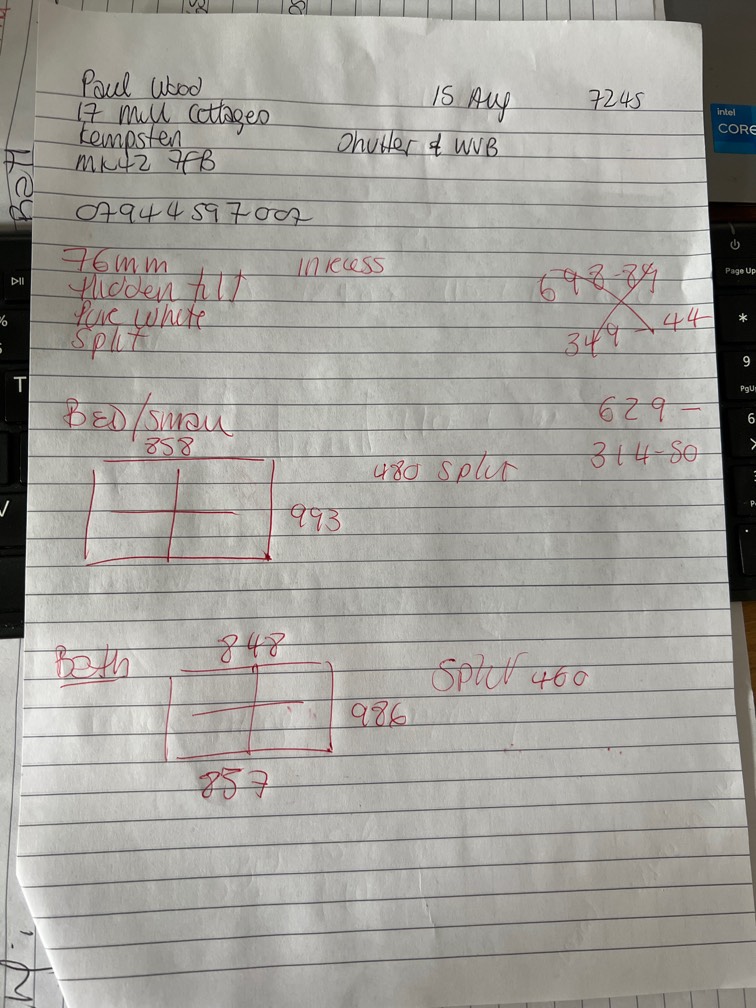 Paul Wood
15 Aug
7245
17 Mill Cottages
Kempsten
Shutter & WVB
MK42 7FB
07944597007
76mm
In recess
Hidden tilt
Pure White
Split
698-89
349-44
Bed/small
629-
314-50
858
480 split
993
Bath
848
Split 460
986
857
intel
CORE
Page Up